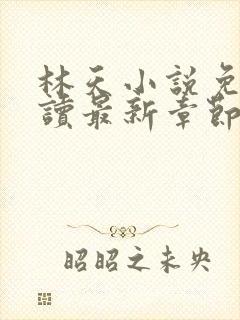 林天小說免
讀最新章節
昭昭之未央